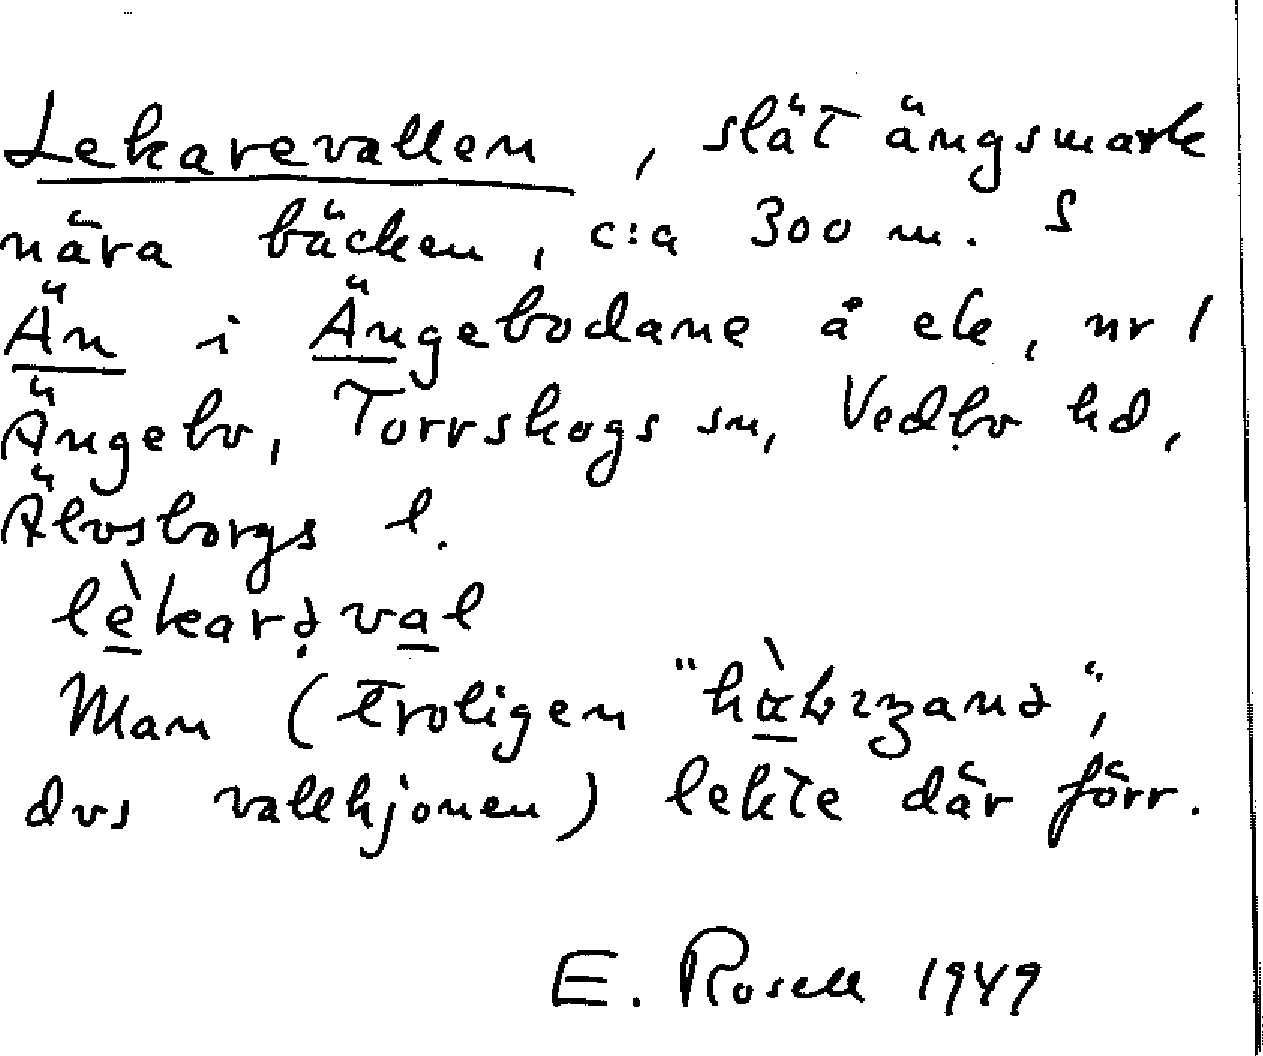 Lekarevallen, slät ängsmark
nära bäcken, c:a 300 m. S
Än i Ängebodane å ek, nr 1
Ängebo, Torrskogs sn, Vedbo hd,
Älvsborgs l.
lèkarə val
Man (troligen
dvs vallhjonen) lekte där förr.
E. Rosell 1949